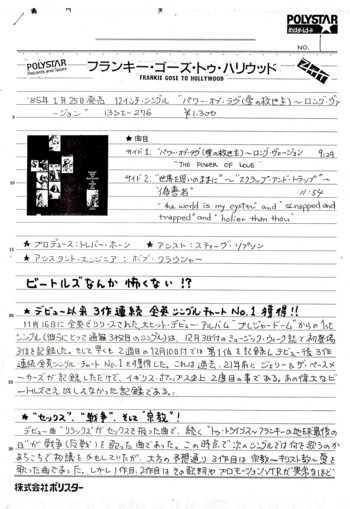 POLYSTAR
NO.
POLYSTAR
Records and Tapes
フランキー・ゴーズ・トゥ・ハリウッド
FRANKIE GOSE TO HOLLYWOOD
'85年1月25日発売 12インチ・シングル "パワー・オブ・ラヴ(愛の救世主)～ロング・ヴァ
ージョン" 13SI-276 ¥1,300
★曲目
サイド1. "パワー・オブ・ラヴ(愛の救世主)～ロング・ヴァージョン 9:29
"THE POWER OF LOVE"
サイド2. "世界を思いのままに"～"スクラップ・アンド・トラップ"～
"偽善者" 11:54
"the world is my oyster" and "scrapped and
trapped" and "holier than thou"
★プロデュース:トレバー・ホーン ★アシスト:スティーヴ・リプソン
★アシスタント・エンジニア:ボブ・クラウシャー
ビートルズなんか怖くない!?
★デビュー以来3作連続全英シングルチャートNo.1獲得!!
11月16日に全英でリリースされた、大ヒット・デビュー・アルバム"プレジャードーム"からの1st
シングル(彼らにとって通算3枚目のシングル)は、12月3日付のミュージック・ウィーク誌で初登場
3位を記録した。そして早くも2週目の12月10日付では第1位を記録し、デビュー後3作
連続全英シングル・チャートNo.1を獲得した。これは過去、21年前にジェリー&ザ・ペースメ
ーカーズが記録しただけで、イギリス・ポップス史上2度目の事である。あの偉大なビ
ートルズさえ成しえなかった記録である。
★"セックス"、"戦争"、そして"宗教"!
デビュー曲"リラックス"がセックスを扱った曲で、続く"トゥ・トライブス～フランキーの地球最後の
日"が戦争(反戦)を歌った曲であった。この時点で次のシングルでは何を歌うのか
あちこちで物議をかもしていたが、大方の予想通り3作目は宗教～キリスト教～愛を
歌った曲であった。しかし1作目、2作目はその歌詞やプロモーションVTRが異常なほど
株式会社ポリスター
5
10
15
20
25